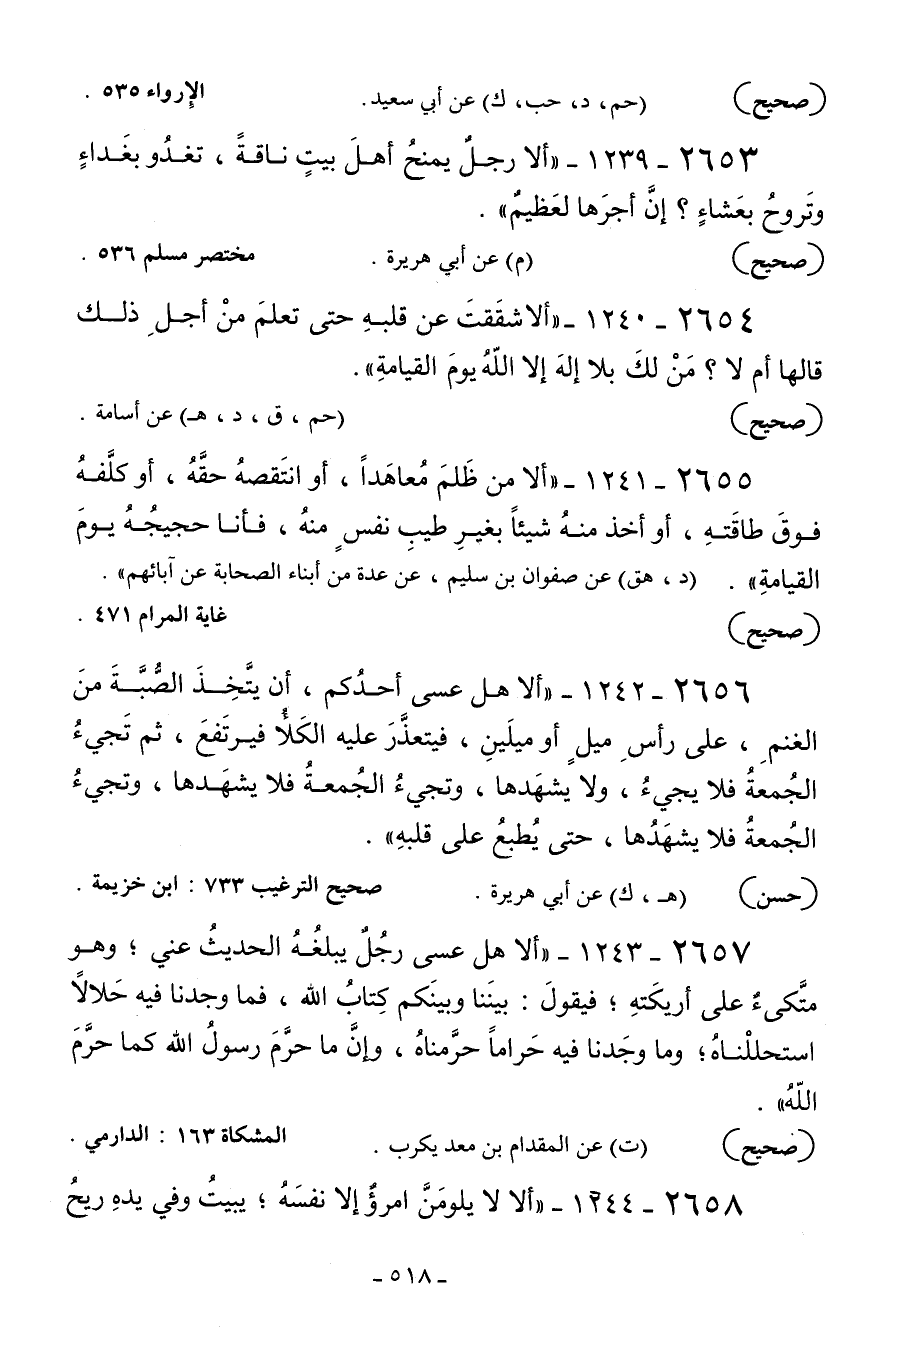 (صحيح) (حم، د، حب، ك) عن أبي سعيد. الإرواء ٥٣٥ .
٢٦٥٣ - ١٢٣٩ - «ألا رجلٌ يمنحُ أهلَ بيتٍ ناقةً ، تغدُو بغَداءٍ
وتَروحُ بعَشاءٍ ؟ إنَّ أجرَها لعَظيمٌ» .
(صحيح) (م) عن أبي هريرة . مختصر مسلم ٥٣٦ .
٢٦٥٤ - ١٢٤٠ - «ألا شقَقتَ عن قلبهِ حتى تعلمَ منْ أجلِ ذلك
قالها أم لا ؟ مَنْ لكَ بلا إلهَ إلا اللّهُ يومَ القيامةِ» .
(صحيح) (حم ، ق ، د ، هـ) عن أسامة .
٢٦٥٥ - ١٢٤١ - «ألا من ظَلمَ مُعاهَداً ، أو انتَقصهُ حقَّهُ ، أو كلَّفهُ
فوقَ طاقَتهِ ، أو أخذ منهُ شيئاً بغيرِ طيبِ نفسٍ منهُ ، فأنا حجيجُهُ يومَ
القيامةِ» . (د ، هق) عن صفوان بن سليم ، عن عدة من أبناء الصحابة عن آبائهم» .
(صحيح) غاية المرام ٤٧١ .
٢٦٥٦ - ١٢٤٢ - «ألا هل عسى أحدُكم ، أن يتَّخِذَ الصُّبَّةَ منَ
الغنمِ ، على رأسِ ميلٍ أو ميلَينِ ، فيتعذَّرَ عليه الكَلأُ فيرتَفعَ ، ثم تَجيءُ
الجُمعةُ فلا يجيءُ ، ولا يشهَدها ، وتجيءُ الجُمعةُ فلا يشهَدها ، وتجيءُ
الجُمعةُ فلا يشهَدُها ، حتى يُطبعُ على قلبهِ» .
(حسن) (هـ ، ك) عن أبي هريرة . صحيح الترغيب ٧٣٣ : ابن خزيمة .
٢٦٥٧ - ١٢٤٣ - «ألا هل عسى رجُلٌ يبلغُهُ الحديثُ عني ؛ وهو
متَّكىءٌ على أريكَتهِ ؛ فيقولَ : بيننا وبينَكم كِتابُ الله ، فما وجدنا فيه حَلالاً
استحللْناهُ؛ وما وجَدنا فيه حَراماً حرَّمناهُ ، وإنَّ ما حرَّمَ رسولُ الله كما حرَّمَ
اللّهُ» .
(صحيح) (ت) عن المقدام بن معد يكرب . المشكاة ١٦٣ : الدارمي .
٢٦٥٨ - ١٢٤٤ - «ألا لا يلومَنَّ امرؤٌ إلا نفسَهُ ؛ يبيتُ وفي يدهِ ريحُ
- ٥١٨ -